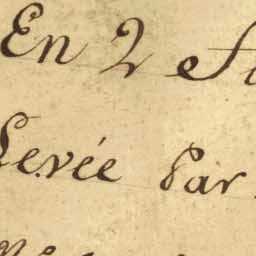 En 2
Levée Par